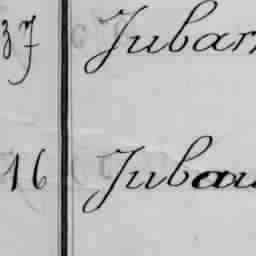 37 Jubar
16 Jubau